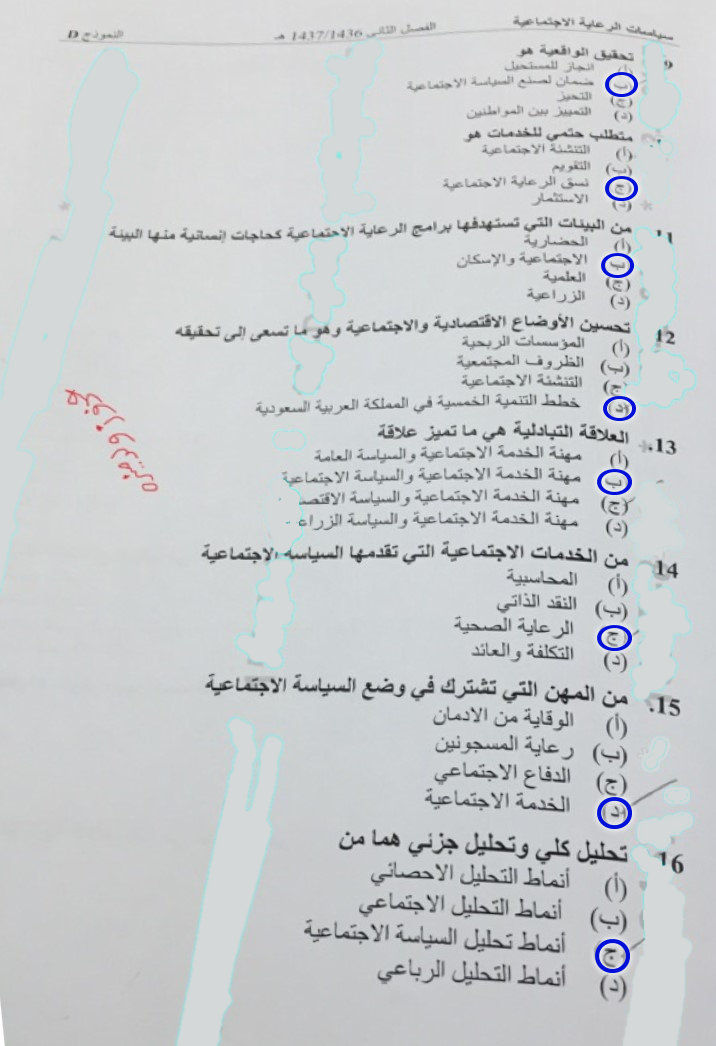 سياسات الرعاية الاجتماعية الفصل الثاني 1437/1436 هـ النموذج D
9 تحقيق الواقعية هو
(أ) انجاز للمستحيل
(ب) ضمان لصنع السياسة الاجتماعية
(ج) التحيز
(د) التمييز بين المواطنين
متطلب حتمي للخدمات هو
(أ) التنشئة الاجتماعية
(ب) التقويم
(ج) نسق الرعاية الاجتماعية
(د) الاستثمار
11 من البيئات التي تستهدفها برامج الرعاية الاجتماعية كحاجات إنسانية منها البيئة
(أ) الحضارية
(ب) الاجتماعية والإسكان
(ج) العلمية
(د) الزراعية
12 تحسين الأوضاع الاقتصادية والاجتماعية وهو ما تسعى إلى تحقيقه
(أ) المؤسسات الربحية
(ب) الظروف المجتمعية
(ج) التنشئة الاجتماعية
(د) خطط التنمية الخمسية في المملكة العربية السعودية
13. العلاقة التبادلية هي ما تميز علاقة
(أ) مهنة الخدمة الاجتماعية والسياسة العامة
(ب) مهنة الخدمة الاجتماعية والسياسة الاجتماعية
(ج) مهنة الخدمة الاجتماعية والسياسة الاقتص
(د) مهنة الخدمة الاجتماعية والسياسة الزراع
14 من الخدمات الاجتماعية التي تقدمها السياسة الاجتماعية
(أ) المحاسبية
(ب) النقد الذاتي
(ج) الرعاية الصحية
(د) التكلفة والعائد
15. من المهن التي تشترك في وضع السياسة الاجتماعية
(أ) الوقاية من الادمان
(ب) رعاية المسجونين
(ج) الدفاع الاجتماعي
(د) الخدمة الاجتماعية
16 تحليل كلي وتحليل جزئي هما من
(أ) أنماط التحليل الاحصائي
(ب) أنماط التحليل الاجتماعي
(ج) أنماط تحليل السياسة الاجتماعية
(د) أنماط التحليل الرباعي